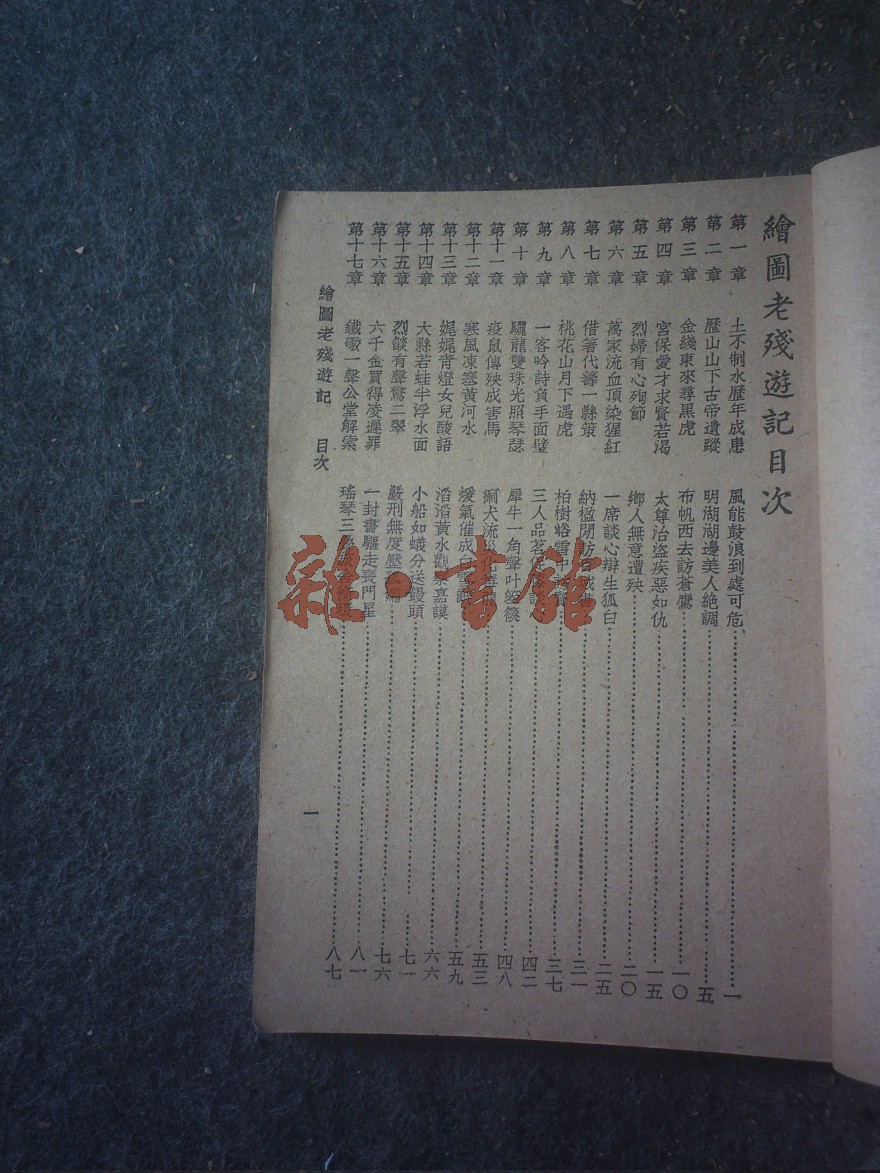 繪圖老殘遊記目次
第一章 土不制水歷年成患 風能鼓浪到處可危 一
第二章 歷山山下古帝遺蹤 明湖湖邊美人絶調 五
第三章 金綫東來尋黑虎 布帆西去訪蒼鷹 一〇
第四章 宮保愛才求賢若渴 太尊治盜疾惡如仇 一五
第五章 烈婦有心殉節 鄉人無意遭殃 二〇
第六章 萬家流血頂染猩紅 一席談心辯生狐白 二五
第七章 借箸代籌一縣策 納楹閒訪 三一
第八章 桃花山月下遇虎 柏樹峪雪中 三七
第九章 一客吟詩負手面壁 三人品茗 四二
第十章 驪龍雙珠光照琴瑟 犀牛一角聲叶箜篌 四八
第十一章 疫鼠傳殃成害馬 瘈犬流 五三
第十二章 寒風凍塞黃河水 煖氣催成 五九
第十三章 娓娓青燈女兒酸語 滔滔黃水觀察嘉謨 六六
第十四章 大縣若蛙半浮水面 小船如蟻分送饅頭 七一
第十五章 烈燄有聲驚二翠 嚴刑無度壓 七六
第十六章 六千金買得凌遲罪 一封書驅走喪門星 八一
第十七章 鐵礮一聲公堂解索 瑤琴三 八七
繪圖老殘遊記 目次 一
雜·書館